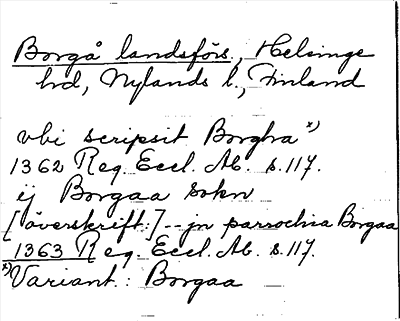 Borgå landsförs., Helsinge
hd, Nylands l., Finland
vbi scripsit Borgha x)
1362 Reg. Eccl. Ab. s. 117.
ij Borgaa sokn
[överskrift:] -- jn parrochia Borgaa
1363 Reg. Eccl. Ab. s. 117.
x) Variant: Borgaa